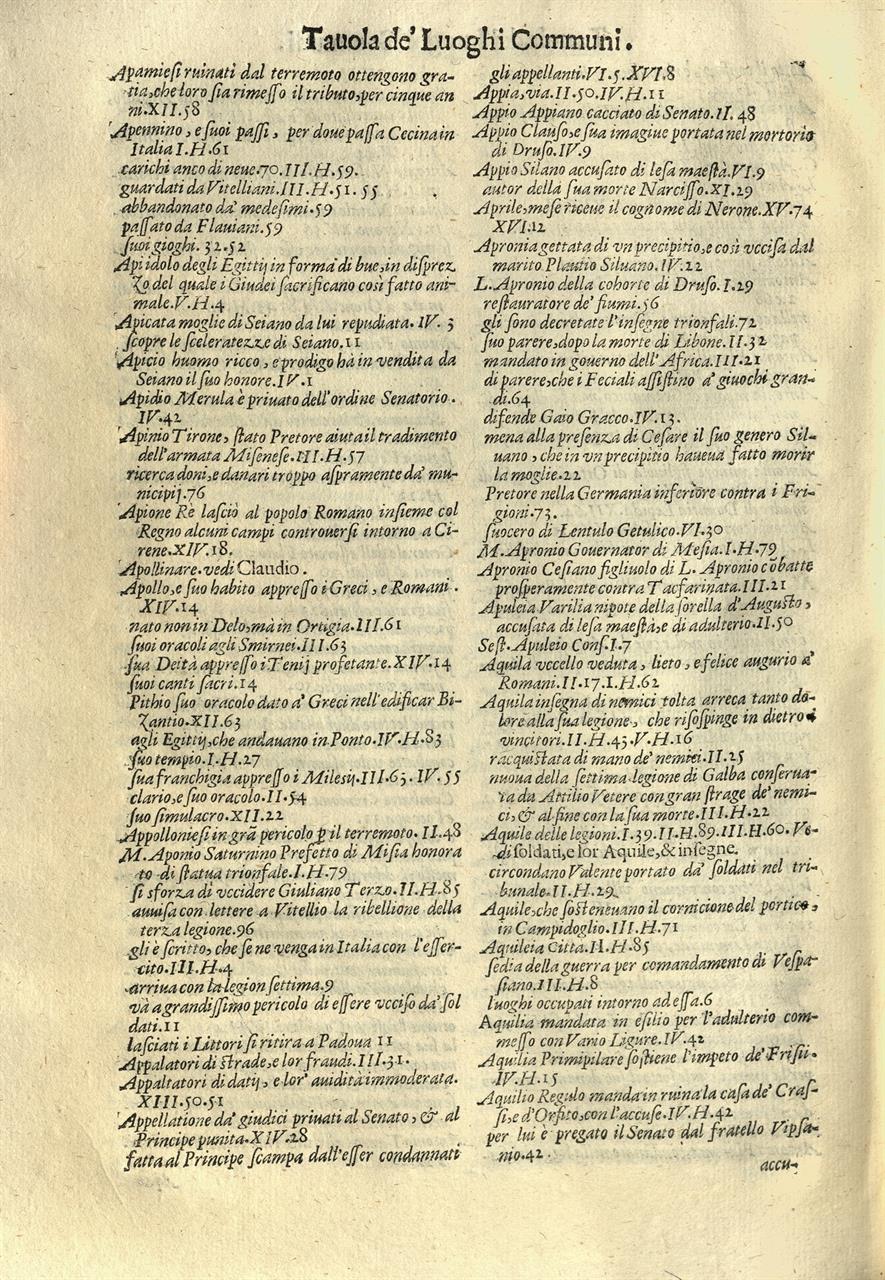 Tauola de' Luoghi Communi.
Apamiesi ruinati dal terremoto ottengono gra-
tia, che loro sia rimesso il tributo, per cinque an
ni. XII. 58
Apennino, e suoi passi, per doue passa Cecina in
Italia I. H. 61
carichi anco di neue. 70. III. H. 59.
guardati da Vitelliani. III. H. 51. 55
abbandonato da' medesimi. 59
passato da Flauiani. 59
suoi gioghi. 32. 52
Api idolo degli Egittij in forma di bue, in disprez
zo del quale i Giudei sacrificano così fatto ani-
male. V. H. 4
Apicata moglie di Seiano da lui repudiata. IV. 3
scopre le sceleratezze di Seiano. 11
Apicio huomo ricco, e prodigo hà in vendita da
Seiano il suo honore. IV. 1
Apidio Merula è priuato dell'ordine Senatorio.
IV. 42
Apinio Tirone, stato Pretore aiuta il tradimento
dell'armata Misenese. III. H. 57
ricerca doni, e danari troppo aspramente da' mu-
nicipij. 76
Apione Rè lasciò al popolo Romano insieme col
Regno alcuni campi controuersi intorno a Ci-
rene. XIV. 18.
Apollinare. vedi Claudio.
Apollo, e suo habito appresso i Greci, e Romani.
XIV. 14
nato non in Delo, mà in Ortigia. III. 61
suoi oracoli agli Smirnei. III. 63
sua Deità appresso i Tenij profetante. XIV. 14
suoi canti sacri. 14
Pithio suo oracolo dato a' Greci nell'edificar Bi-
zantio. XII. 63
agli Egittij, che andauano in Ponto. IV. H. 83
suo tempio. I. H. 27
sua franchigia appresso i Milesij. III. 63. IV. 55
clario, e suo oracolo. II. 54
suo simulacro. XII. 22
Appolloniesi in grã pericolo ꝑ il terremoto. II. 48
M. Aponio Saturnino Prefetto di Misia honora
to di statua trionfale. I. H. 79
si sforza di vccidere Giuliano Terzo. II. H. 85
auuisa con lettere a Vitellio la ribellione della
terza legione. 96
gli è scritto, che se ne venga in Italia con l'esser-
cito. III. H. 4
arriua con la legion settima. 9
và a grandissimo pericolo di essere vcciso da' sol
dati. 11
lasciati i Littori si ritira a Padoua 11
Appalatori di strade, e lor fraudi. III. 31.
Appaltatori di datij, e lor' auidità immoderata.
XIII. 50. 51
Appellatione da' giudici priuati al Senato, & al
Principe punita. XIV. 28
fatta al Principe scampa dall'esser condannati
gli appellanti. VI. 5. XVI. 8
Appia, via. II. 50. IV. H. 11
Appio Appiano cacciato di Senato. II. 48
Appio Clauso, e sua imagiue portata nel mortorio
di Druso. IV. 9
Appio Silano accusato di lesa maestà. VI. 9
autor della sua morte Narcisso. XI. 29
Aprile, mese riceue il cognome di Nerone. XV. 74
XVI. 12
Apronia gettata di vn precipitio, e così vccisa dal
marito Plautio Siluano. IV. 22
L. Apronio della cohorte di Druso. I. 29
restauratore de' fiumi. 56
gli sono decretate l'insegne trionfali. 72
suo parere, dopo la morte di Libone. II. 32
mandato in gouerno dell'Africa. III. 21
di parere, che i Feciali assistino a' giuochi gran-
di. 64
difende Gaio Gracco. IV. 13.
mena alla presenza di Cesare il suo genero Sil-
uano, che in vn precipitio haueua fatto morir
la moglie. 22
Pretore nella Germania inferiore contra i Fri-
gioni. 73.
suocero di Lentulo Getulico. VI. 30
M. Apronio Gouernator di Mesia. I. H. 79
Apronio Cesiano figliuolo di L. Apronio cõbatte
prosperamente contra Tacfarinata. III. 21
Apuleia Varilia nipote della sorella d'Augusto,
accusata di lesa maestà, e di adulterio. II. 50
Sest. Apuleio Cons. I. 7
Aquila vccello veduta, lieto, e felice augurio a'
Romani. II. 17. I. H. 62
Aquila insegna di nemici tolta arreca tanto do-
lore alla sua legione, che risospinge in dietro i
vincitori. II. H. 43. V. H. 16
racquistata di mano de' nemici. II. 25
nuoua della settima legione di Galba conserua-
ta da Attilio Vetere con gran strage de' nemi-
ci, & al fine con la sua morte. III. H. 22
Aquile delle legioni. I. 39. II. H. 89. III. H. 60. Ve-
di soldati, e lor Aquile, & insegne.
circondano Valente portato da' soldati nel tri-
bunale. II. H. 29
Aquile, che sosteneuano il cornicione del portico,
in Campidoglio. III. H. 71
Aquileia Citta. II. H. 85
sedia della guerra per comandamento di Vespa-
siano. III. H. 8
luoghi occupati intorno ad essa. 6
Aquilia mandata in esilio per l'adulterio com-
messo con Vario Ligure. IV. 42
Aquilia Primipilare sostiene l'impeto de' Frisii.
IV. H. 15
Aquilio Regulo manda in ruina la casa de' Cras-
si, e d'Orfito, con l'accuse. IV. H. 42
per lui è pregato il Senato dal fratello Vipsa-
nio. 42.
accu-